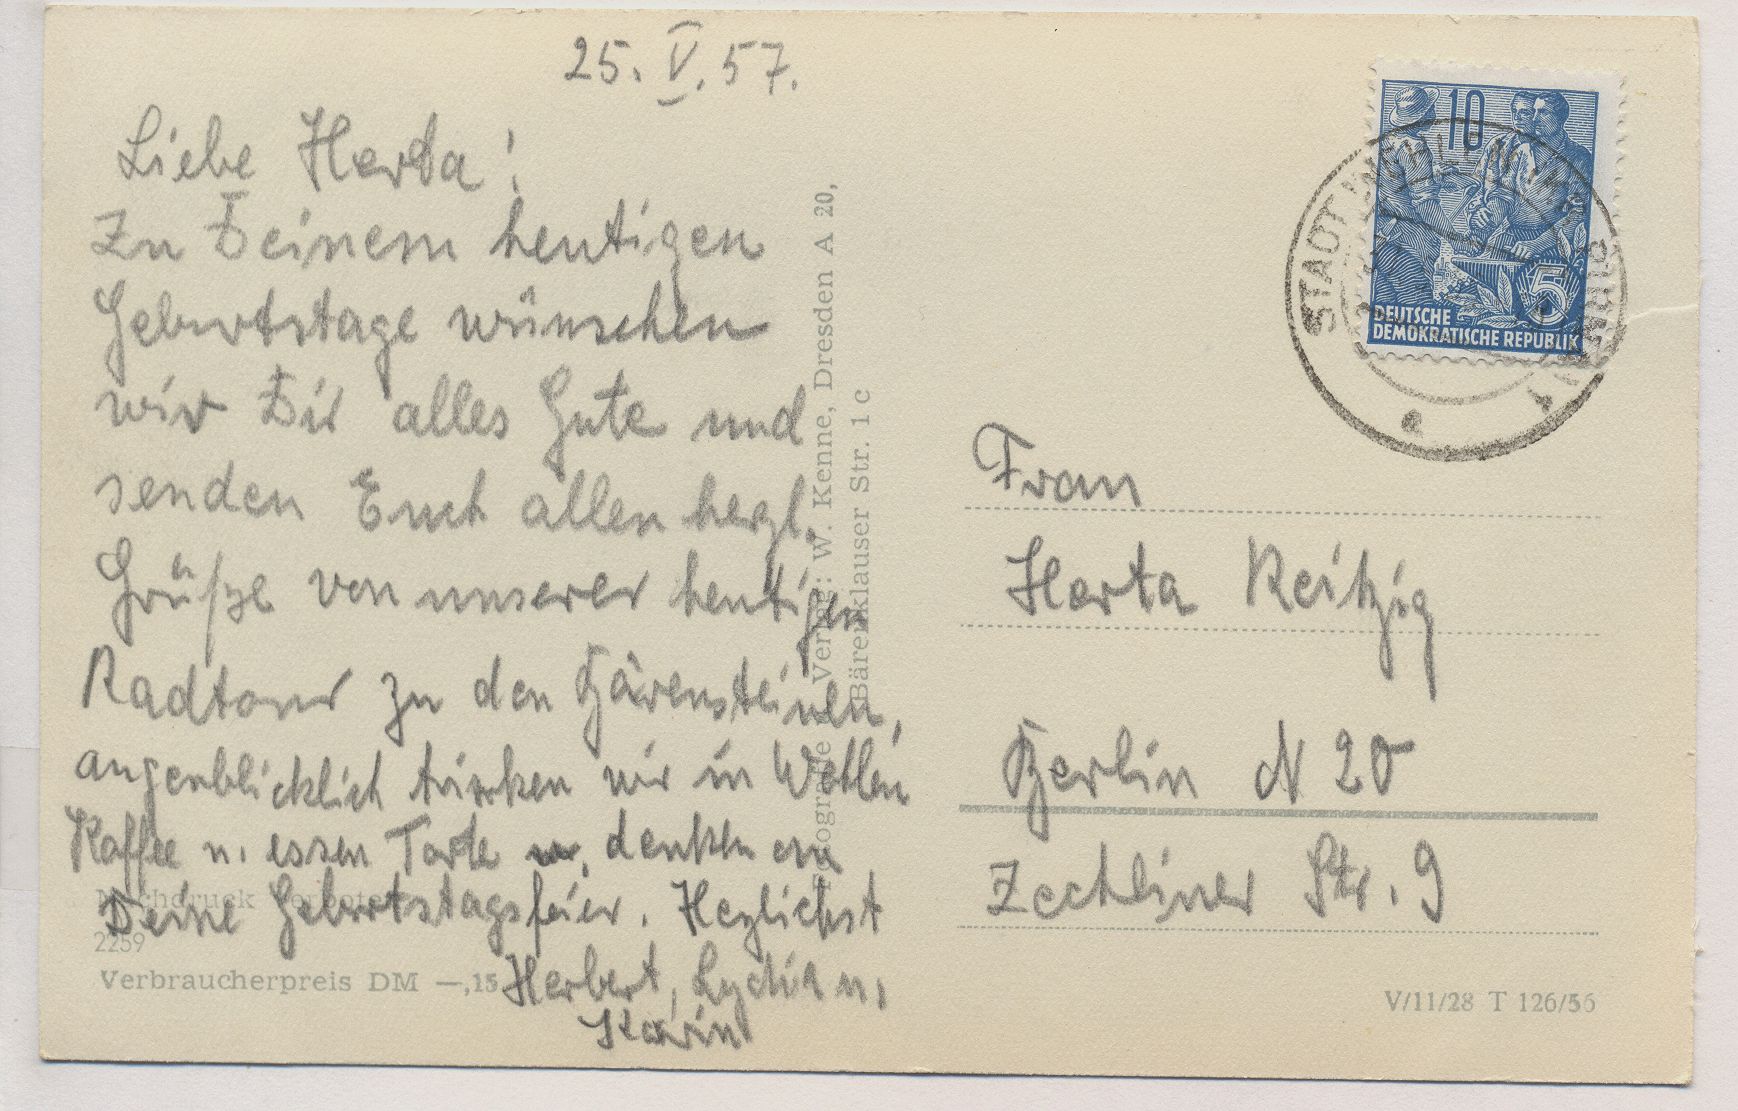 25. V. 57.
Liebe Herta!
Zu Deinem heutigen
Geburtstage wünschen
wir Dir alles Gute und
senden Euch allen herzl.
Grüße von unserer heutigen
Radtour zu den Bärensteinen,
augenblicklich trinken wir in Wehlen
Kaffee u. essen Torte denken an
Deine Geburtstagsfeier. Herzlichst
Herbert, Lydia u.
Karin
Nachdruck verboten
2259
Verbraucherpreis DM —,15
Verlag: W. Kenne, Dresden A 20,
Bärenklauser Str. 1 c
10
5
DEUTSCHE
DEMOKRATISCHE REPUBLIK
STADT WEHLEN
a
Frau
Herta Reitzig
Berlin N 20
Zechliner Str. 9
V/11/28 T 126/56